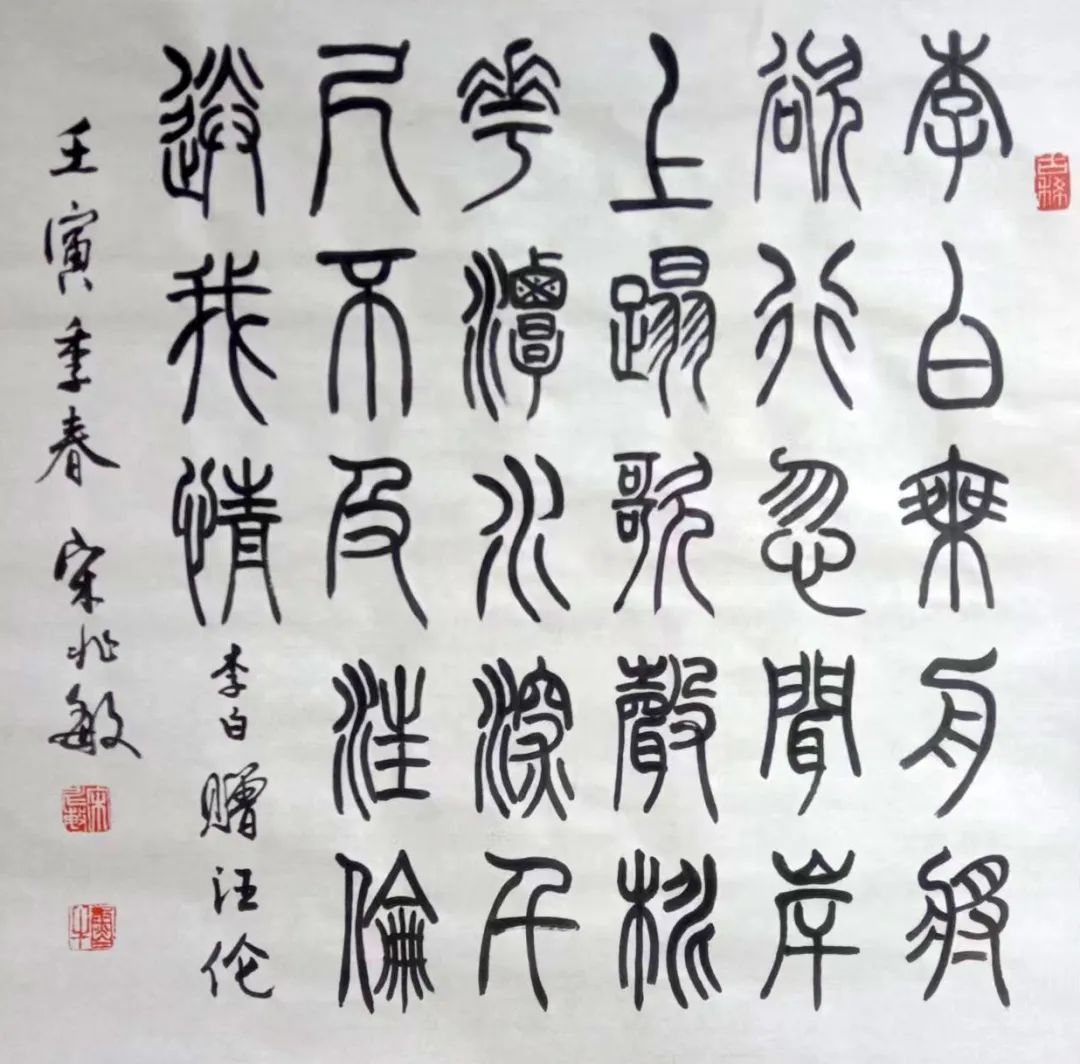 李白乘舟將
欲行忽聞岸
上蹋歌聲桃
花潭水深千
尺不及汪倫
送我情
李白赠汪伦
壬寅季春 宋兆敏